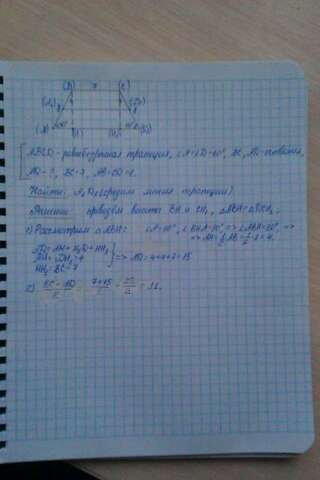 (B) 7 (C)
ABCD - равнобедренная трапеция, ∠A=∠D=60°, BC, AD - основания,
AD - ?, BC=7, AB=CD=8.
Найти: (средняя линия трапеции).
Решение: проведём высоты BH и CH₁, △ABH=△DCH₁
1) Рассмотрим △ABH: ∠A=60°, ∠BHA=90° => ∠ABH=30° =>
=> AH=½AB=½·8=4.
AD=AH+H₁D+HH₁
AH=DH₁=4 => AD=4+4+7=15
HH₁=BC=7
2) BC+AD/2 = 7+15/2 = 22/2 = 11.